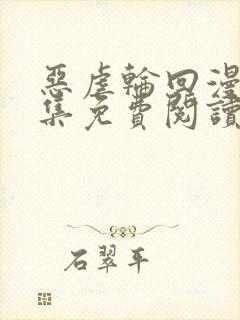 惡虐輪回漫
集免費閱讀
石翠平